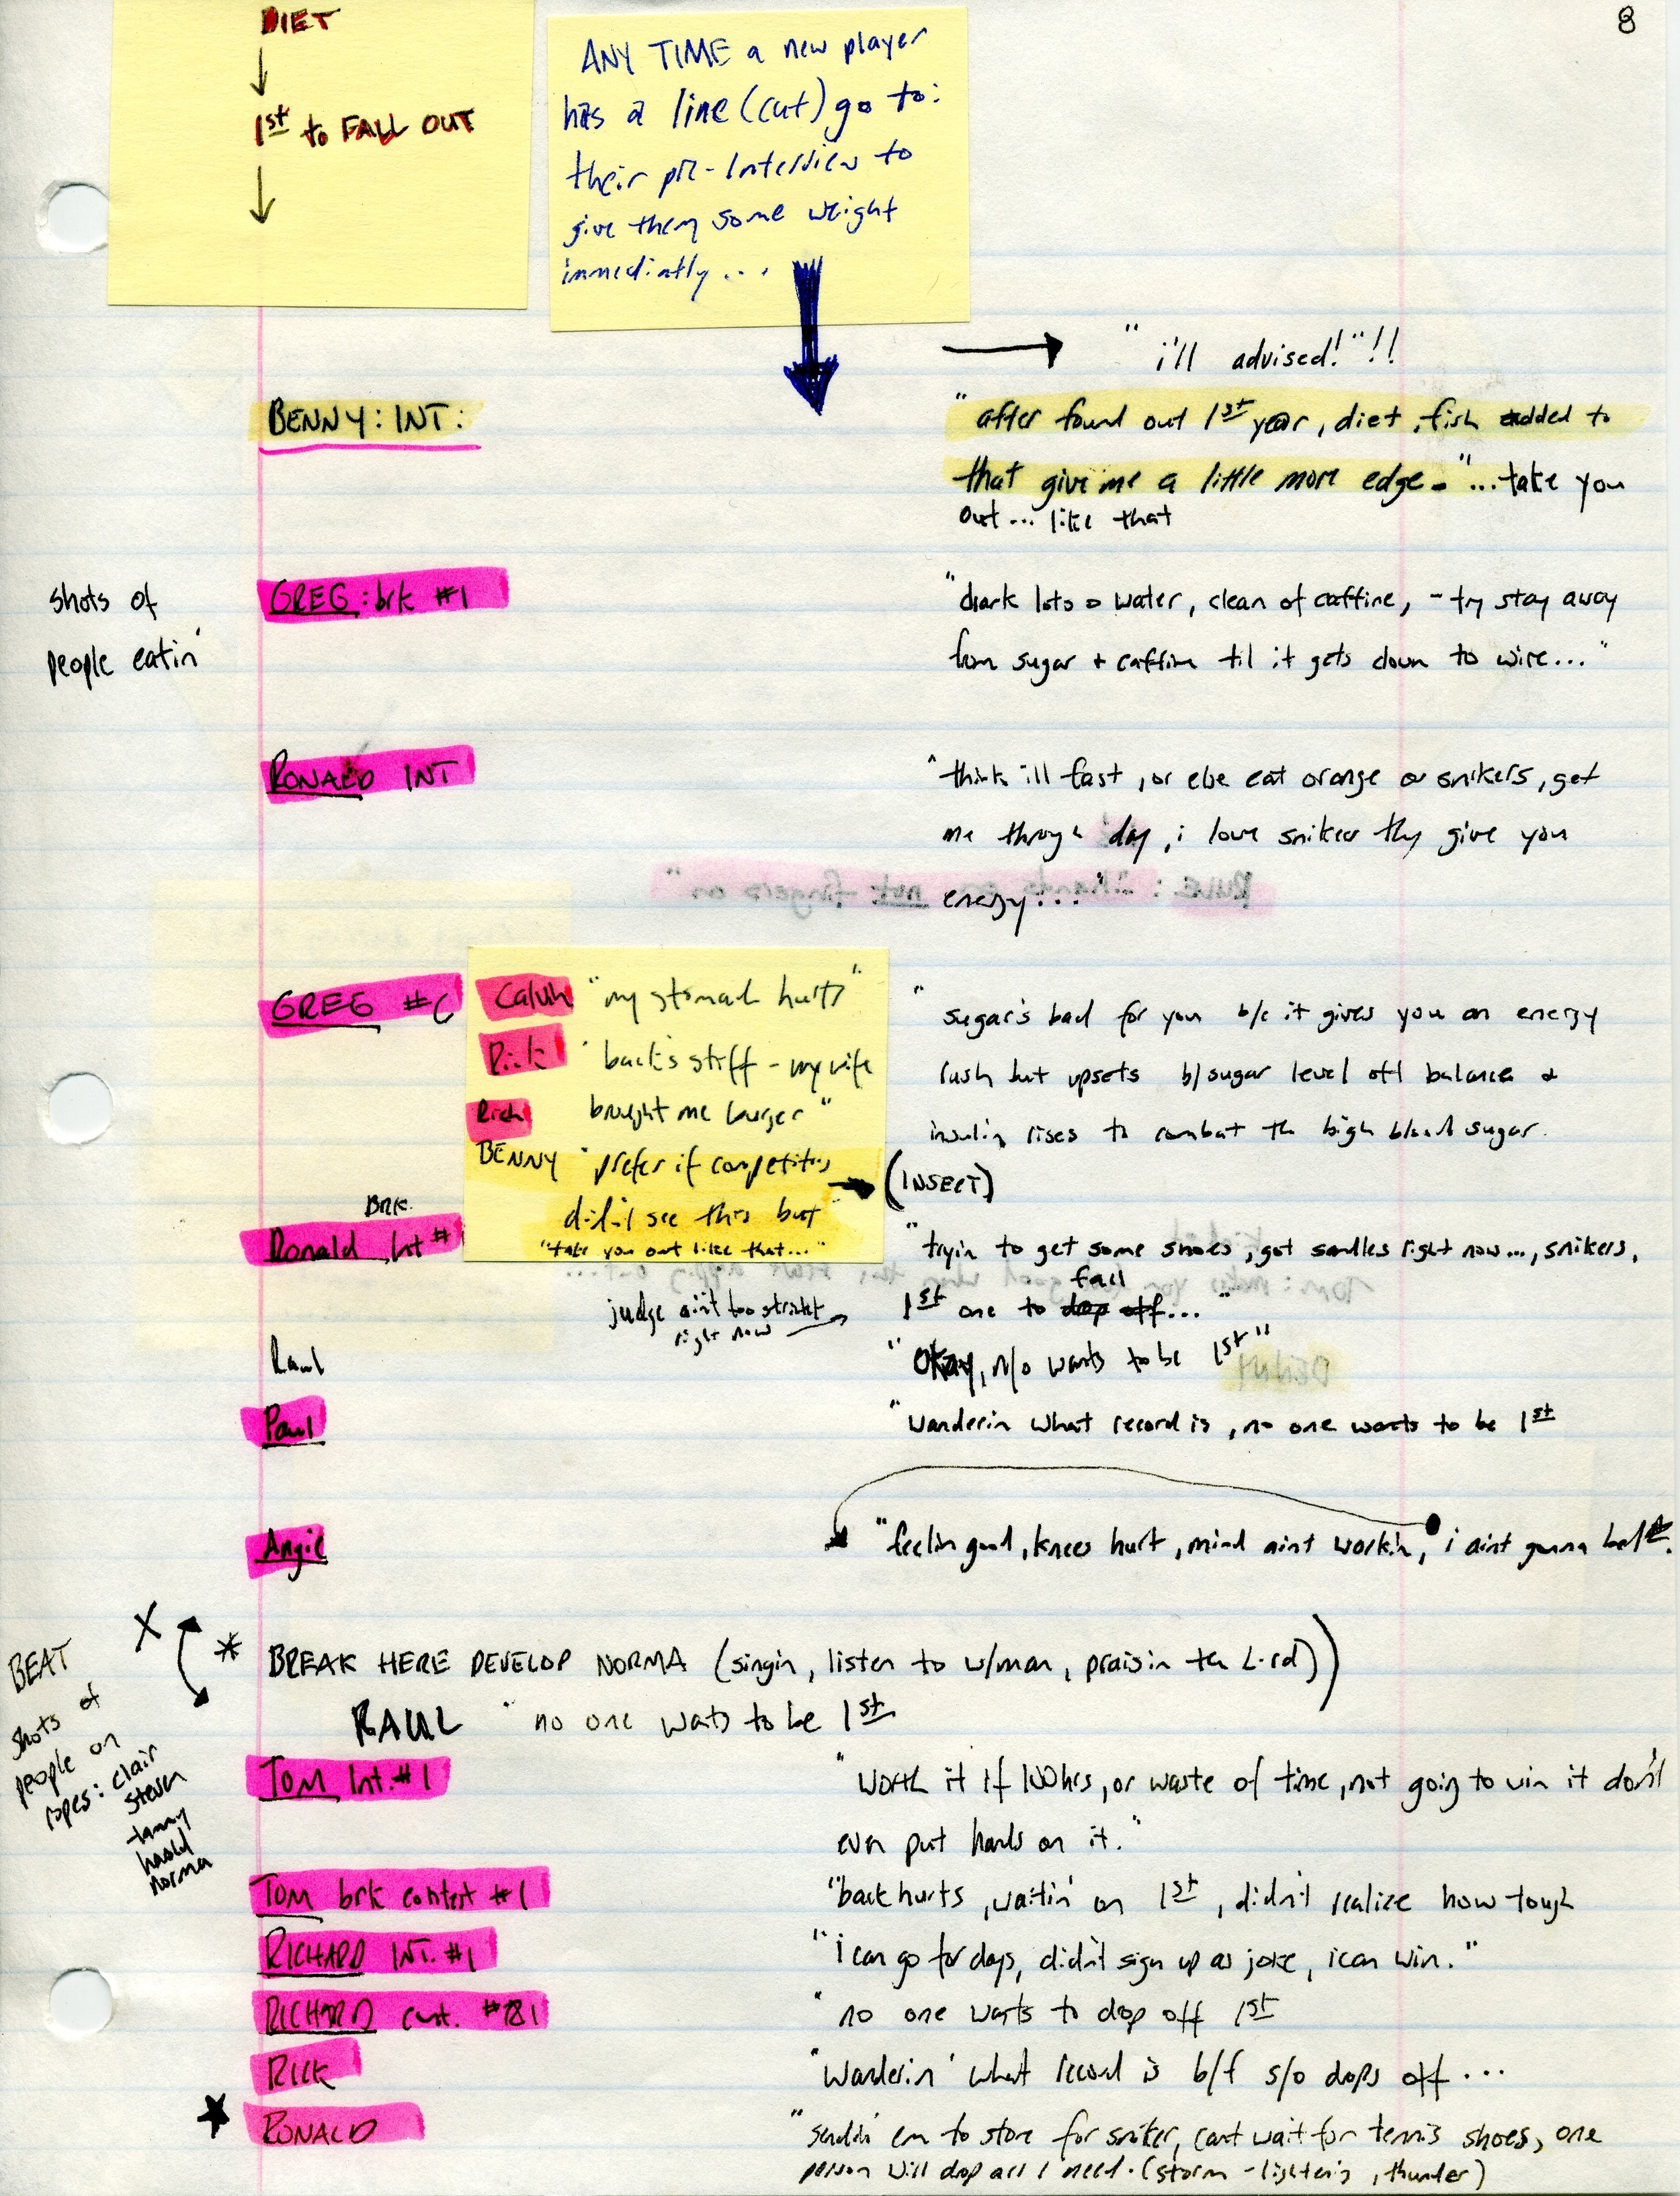 8
DIET
1st to FALL OUT
ANY TIME a new player
has a line (cut) go to:
their pre-Interview to
give them some weight
immediatly...
"i'll advised!"!!
BENNY: INT:
"after found out 1st year, diet, fish added to
that give me a little more edge-"...take you
out... like that
shots of
people eatin'
GREG: brk #1
"drank lots o water, clean of caffine, - try stay away
from sugar + caffine til it gets down to wire..."
RONALD INT
"think ill fast, or else eat orange or snikers, get
me through day, i love snikers thy give you
energy..."
GREG #6
Calvin "my stomach hurts"
Rick "back's stiff - my wife
Rich bought me burger"
BENNY "prefer if competitors
didn't see this but"
"take you out like that..."
"sugar's bad for you b/c it gives you an energy
rush but upsets b/sugar level off balance &
insulin rises to combat th high blood sugar.
(INSERT)
Brk.
Ronald Int #
"tryin to get some shoes, got sandles right now..., snikers,
1st one to drop off fall..."
judge ain't too strickt
right now
Raul
"Okay, n/o wants to be 1st"
Paul
"wanderin what record is, no one wants to be 1st
Angie
"feelin good, knees hurt, mind aint workin, i aint gonna be 1st.
X
* BREAK HERE DEVELOP NORMA (singin, listen to w/man, praisin th Lord)
RAUL "no one wats to be 1st
BEAT
shots of
people on
ropes: clair
steven
tammy
harold
norma
TOM Int. #1
"worth it if 100hrs, or waste of time, not going to win it don't
even put hands on it."
TOM brk contest #1
"back hurts, waitin' on 1st, didn't realize how tough
RICHARD INT. #1
"i can go for days, didn't sign up as joke, i can win."
RICHARD cont.
"no one wants to drop off 1st
RICK
"Wanderin' what record is b/f s/o drops off...
RONALD
"sendin' em to store for sniker, cant wait for tennis shoes, one
person will drop all I need. (storm - lightenis, thunder)